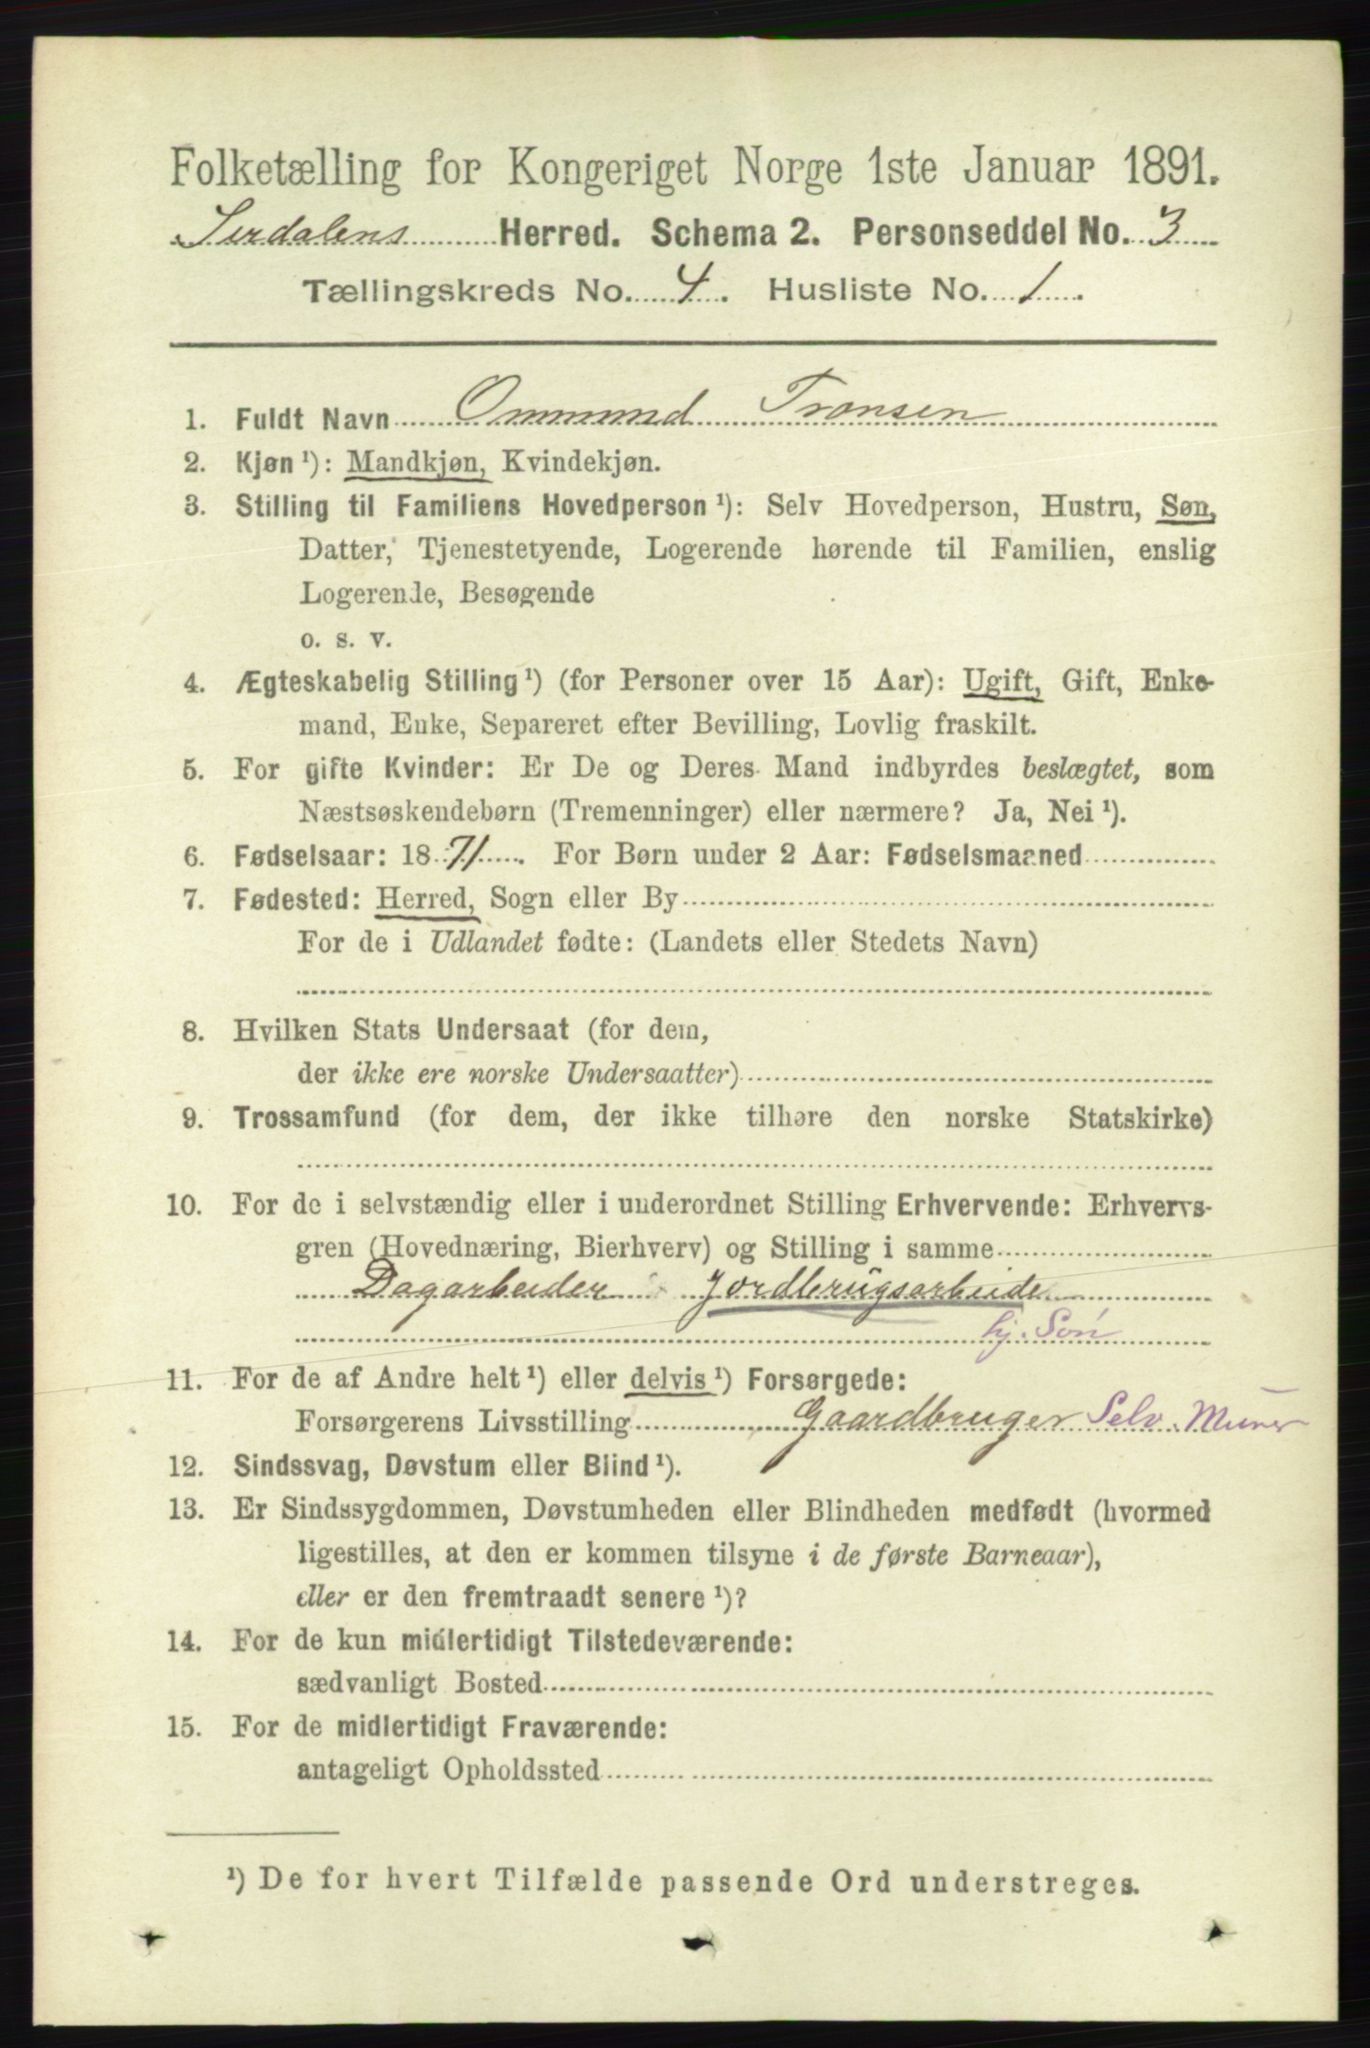 Folketælling for Kongeriget Norge 1ste Januar 1891.
Sirdalens Herred. Schema 2. Personseddel No. 3
Tællingskreds No. 4. Husliste No. 1.
1. Fuldt Navn Ommund Tronsen
2. Kjøn ¹): Mandkjøn, Kvindekjøn.
3. Stilling til Familiens Hovedperson ¹): Selv Hovedperson, Hustru, Søn,
Datter, Tjenestetyende, Logerende hørende til Familien, enslig
Logerende, Besøgende
o. s. v.
4. Ægteskabelig Stilling ¹) (for Personer over 15 Aar): Ugift, Gift, Enke-
mand, Enke, Separeret efter Bevilling, Lovlig fraskilt.
5. For gifte Kvinder: Er De og Deres Mand indbyrdes beslægtet, som
Næstsøskendebørn (Tremenninger) eller nærmere? Ja, Nei ¹).
6. Fødselsaar: 1871. For Børn under 2 Aar: Fødselsmaaned
7. Fødested: Herred, Sogn eller By
For de i Udlandet fødte: (Landets eller Stedets Navn)
8. Hvilken Stats Undersaat (for dem,
der ikke ere norske Undersaatter)
9. Trossamfund (for dem, der ikke tilhøre den norske Statskirke)
10. For de i selvstændig eller i underordnet Stilling Erhvervende: Erhvervs-
gren (Hovednæring, Bierhverv) og Stilling i samme
Dagarbeider Jordbrugsarbeide
hj. Søn
11. For de af Andre helt ¹) eller delvis ¹) Forsørgede:
Forsørgerens Livsstilling Gaardbruger Selv.
12. Sindssvag, Døvstum eller Blind ¹).
13. Er Sindssygdommen, Døvstumheden eller Blindheden medfødt (hvormed
ligestilles, at den er kommen tilsyne i de første Barneaar),
eller er den fremtraadt senere ¹)?
14. For de kun midlertidigt Tilstedeværende:
sædvanligt Bosted
15. For de midlertidigt Fraværende:
antageligt Opholdssted
¹) De for hvert Tilfælde passende Ord understreges.